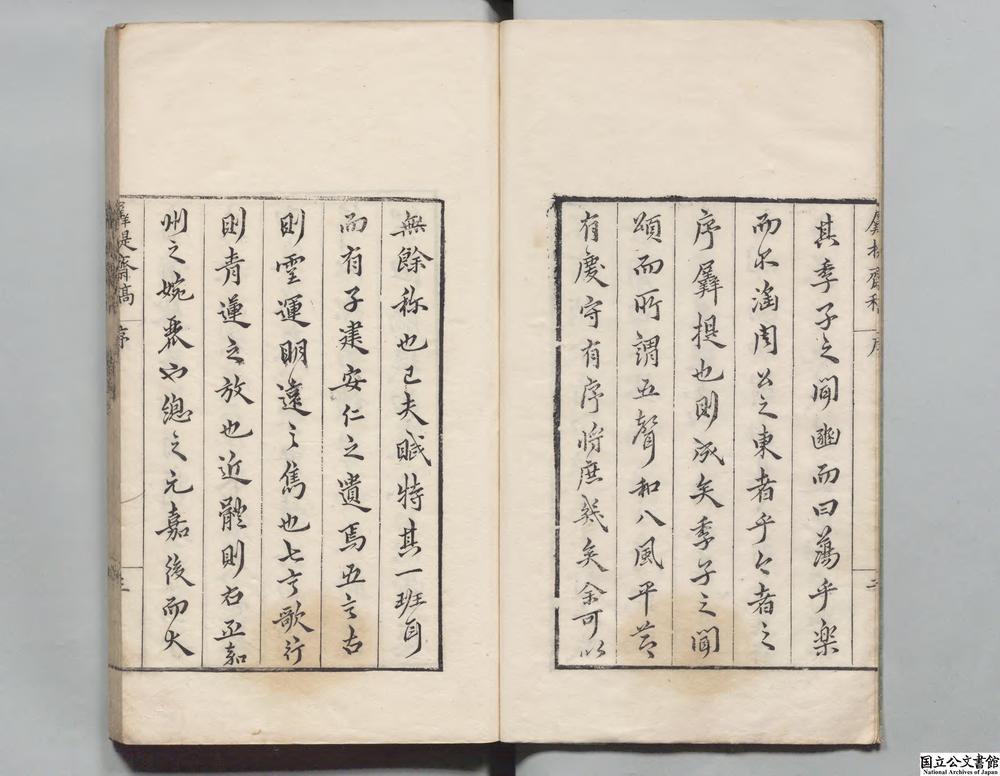 其季子之聞豳而曰蕩乎樂
而不淫周公之東者乎今者之
序羼提也則成矣季子之聞
頌而所謂五聲和八風平節
有度守有序將庶幾矣余可以
無餘称也已夫賦特其一班耳
而有子建安仁之遺焉五言古
則霊運明遠之雋也七言歌行
則青蓮之放也近體則右丞嘉
州之婉麗也總之元嘉後而大
羼提齋稿 序
国立公文書館
National Archives of Japan